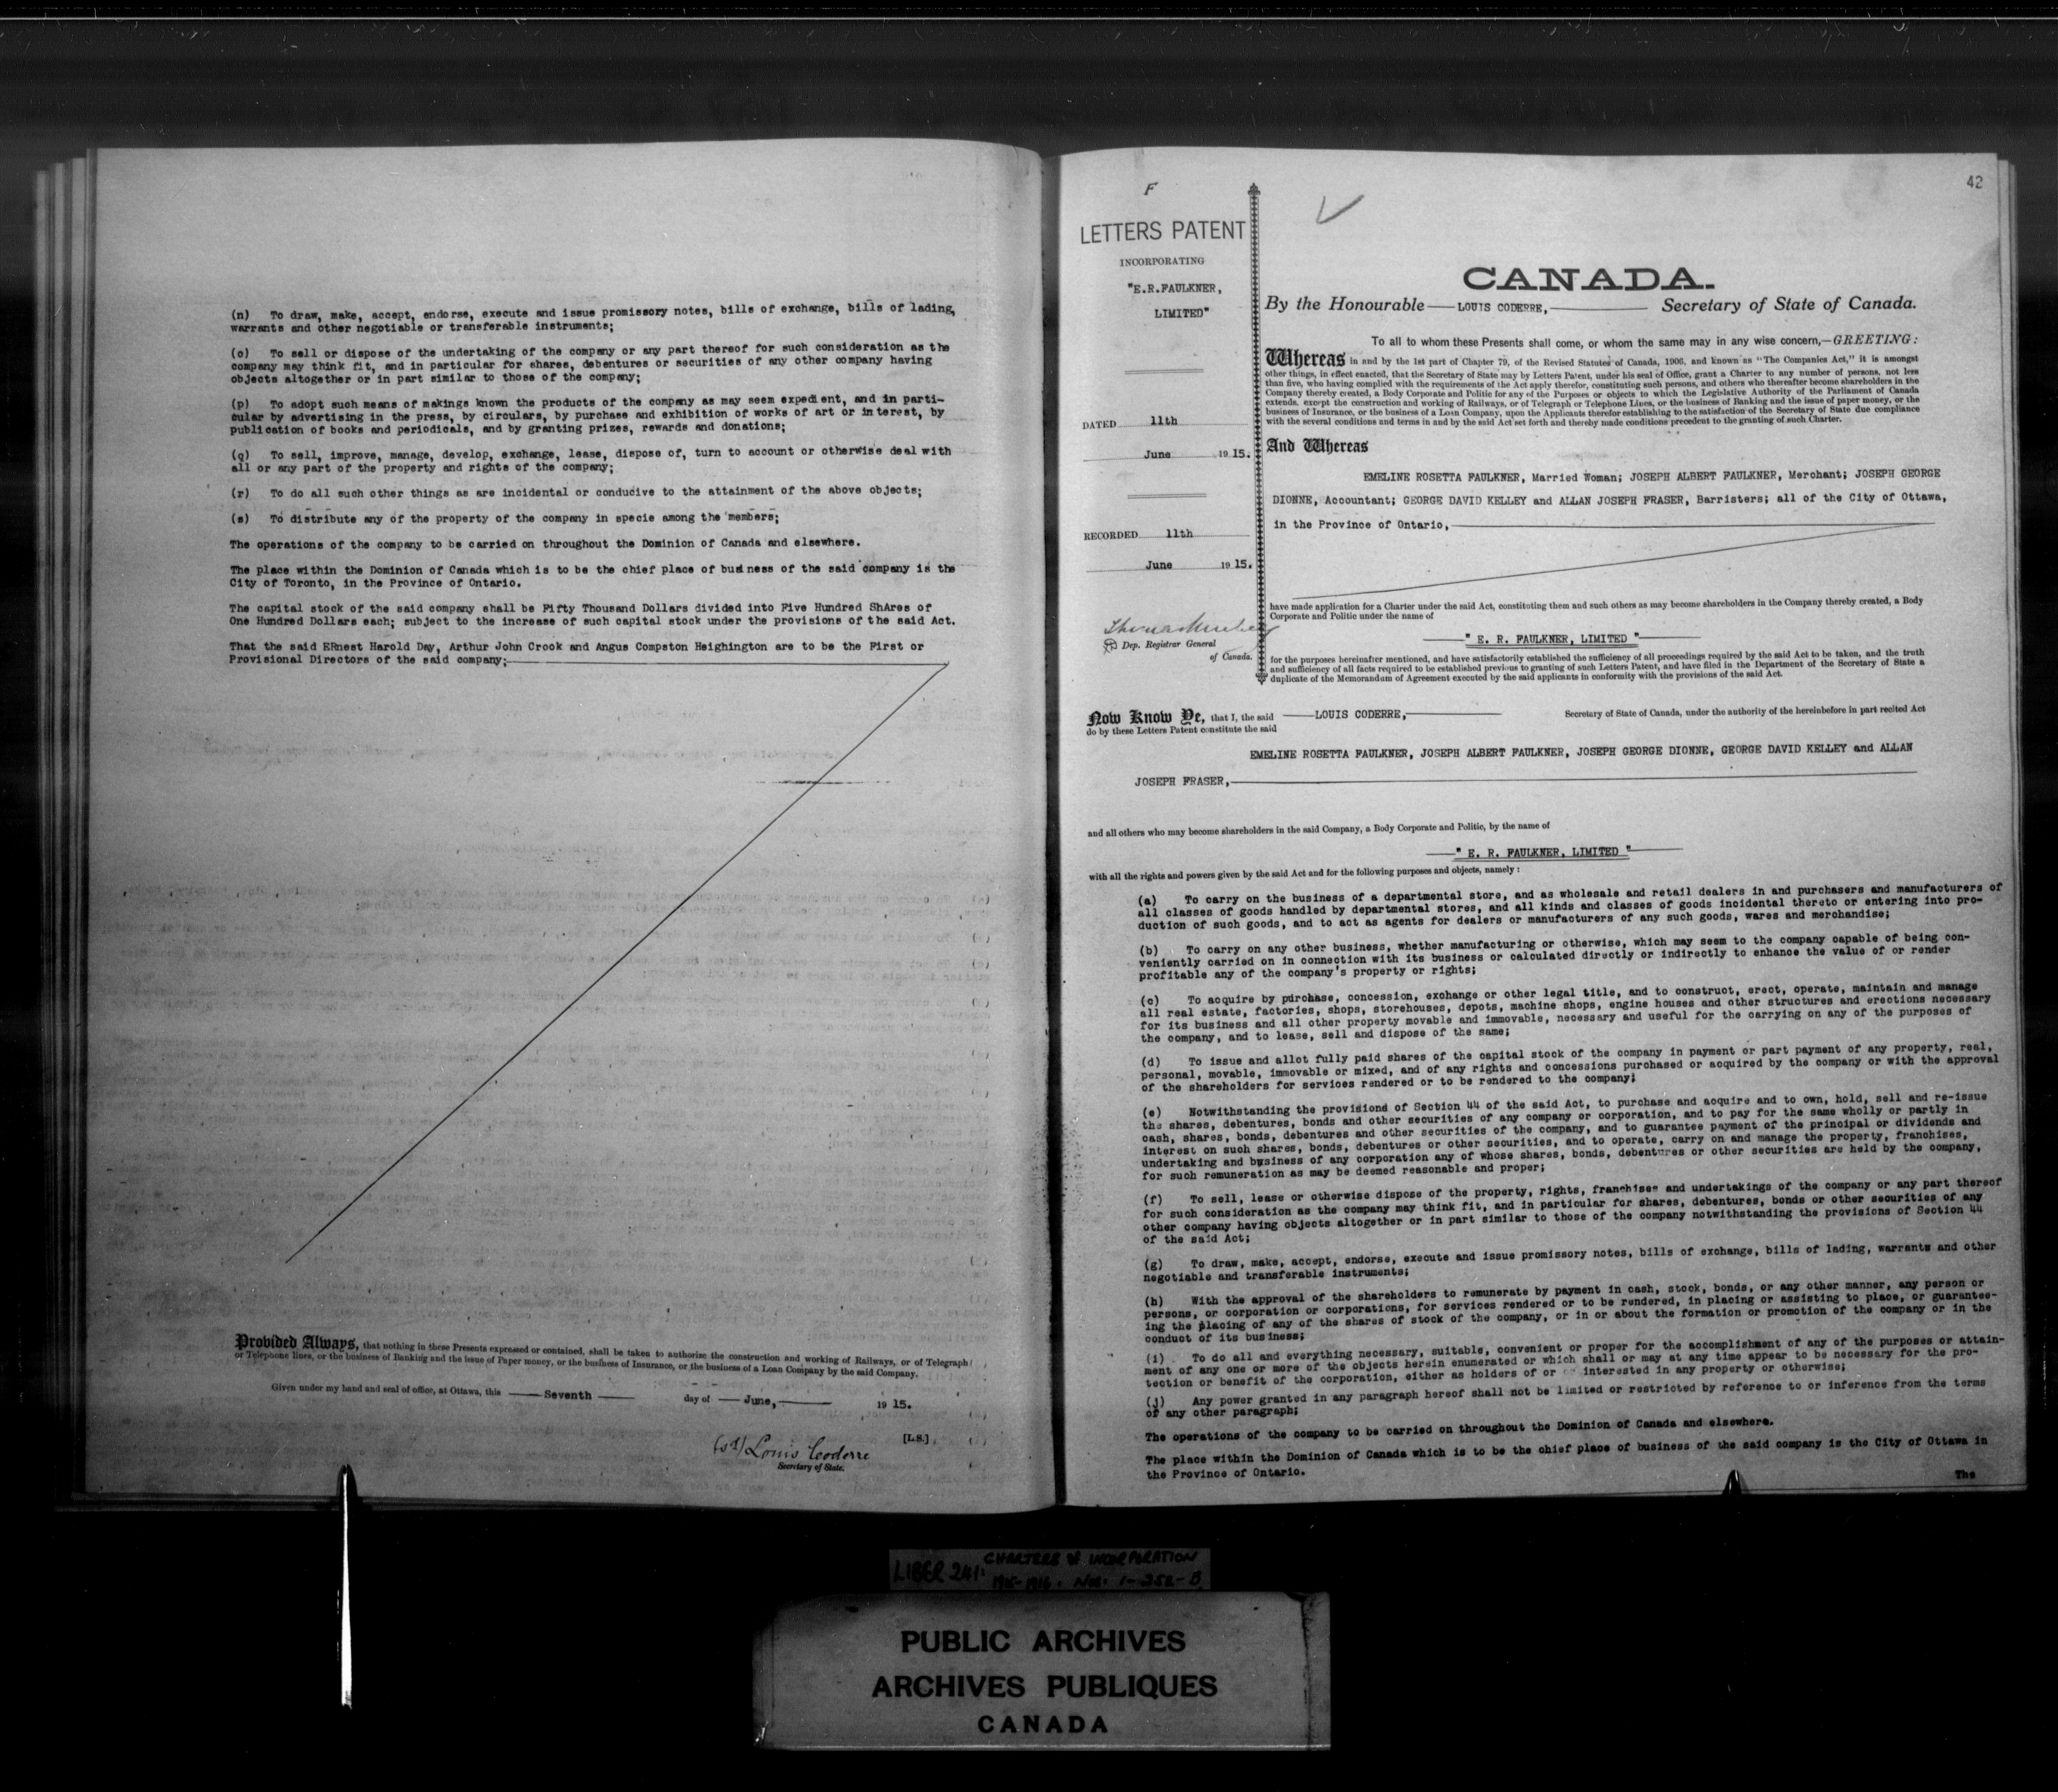 (n) To draw, make, accept, endorse, execute and issue promissory notes, bills of exchange, bills of lading,
warrants and other negotiable or transferable instruments;
(o) To sell or dispose of the undertaking of the company or any part thereof for such consideration as the
company may think fit, and in particular for shares, debentures or securities of any other company having
objects altogether or in part similar to those of the company;
(p) To adopt such means of makings known the products of the company as may seem expedient, and in parti-
cular by advertising in the press, by circulars, by purchase and exhibition of works of art or interest, by
publication of books and periodicals, and by granting prizes, rewards and donations;
(q) To sell, improve, manage, develop, exchange, lease, dispose of, turn to account or otherwise deal with
all or any part of the property and rights of the company;
(r) To do all such other things as are incidental or conducive to the attainment of the above objects;
(s) To distribute any of the property of the company in specie among the members;
The operations of the company to be carried on throughout the Dominion of Canada and elsewhere.
The place within the Dominion of Canada which is to be the chief place of business of the said company is the
City of Toronto, in the Province of Ontario.
The capital stock of the said company shall be Fifty Thousand Dollars divided into Five Hundred ShAres of
One Hundred Dollars each; subject to the increase of such capital stock under the provisions of the said Act.
That the said ERnest Harold Day, Arthur John Crook and Angus Compston Heighington are to be the First or
Provisional Directors of the said company;
Provided Always, that nothing in these Presents expressed or contained, shall be taken to authorize the construction and working of Railways, or of Telegraph
or Telephone lines, or the business of Banking and the issue of Paper money, or the business of Insurance, or the business of a Loan Company by the said Company.
Given under my hand and seal of office, at Ottawa, this Seventh day of June, 19 15.
(sd) Louis Coderre [L.S.]
Secretary of State.
F
42
LETTERS PATENT
INCORPORATING
"E.R.FAULKNER,
LIMITED"
DATED 11th
June 19 15.
RECORDED 11th
June 19 15.
Dep. Registrar General
of Canada.
CANADA.
By the Honourable LOUIS CODERRE, Secretary of State of Canada.
To all to whom these Presents shall come, or whom the same may in any wise concern,—GREETING:
Whereas in and by the 1st part of Chapter 79, of the Revised Statutes of Canada, 1906, and known as "The Companies Act," it is amongst
other things, in effect enacted, that the Secretary of State may by Letters Patent, under his seal of Office, grant a Charter to any number of persons, not less
than five, who having complied with the requirements of the Act apply therefor, constituting such persons, and others who thereafter become shareholders in the
Company thereby created, a Body Corporate and Politic for any of the Purposes or objects to which the Legislative Authority of the Parliament of Canada
extends, except the construction and working of Railways, or of Telegraph or Telephone Lines, or the business of Banking and the issue of paper money, or the
business of Insurance, or the business of a Loan Company, upon the Applicants therefor establishing to the satisfaction of the Secretary of State due compliance
with the several conditions and terms in and by the said Act set forth and thereby made conditions precedent to the granting of such Charter.
And Whereas
EMELINE ROSETTA FAULKNER, Married Woman; JOSEPH ALBERT FAULKNER, Merchant; JOSEPH GEORGE
DIONNE, Accountant; GEORGE DAVID KELLEY and ALLAN JOSEPH FRASER, Barristers; all of the City of Ottawa,
in the Province of Ontario,
have made application for a Charter under the said Act, constituting them and such others as may become shareholders in the Company thereby created, a Body
Corporate and Politic under the name of
" E. R. FAULKNER, LIMITED "
for the purposes hereinafter mentioned, and have satisfactorily established the sufficiency of all proceedings required by the said Act to be taken, and the truth
and sufficiency of all facts required to be established previous to granting of such Letters Patent, and have filed in the Department of the Secretary of State a
duplicate of the Memorandum of Agreement executed by the said applicants in conformity with the provisions of the said Act.
Now Know Ye, that I, the said LOUIS CODERRE, Secretary of State of Canada, under the authority of the hereinbefore in part recited Act
do by these Letters Patent constitute the said
EMELINE ROSETTA FAULKNER, JOSEPH ALBERT FAULKNER, JOSEPH GEORGE DIONNE, GEORGE DAVID KELLEY and ALLAN
JOSEPH FRASER,
and all others who may become shareholders in the said Company, a Body Corporate and Politic, by the name of
" E. R. FAULKNER, LIMITED "
with all the rights and powers given by the said Act and for the following purposes and objects, namely :
(a) To carry on the business of a departmental store, and as wholesale and retail dealers in and purchasers and manufacturers of
all classes of goods handled by departmental stores, and all kinds and classes of goods incidental thereto or entering into pro-
duction of such goods, and to act as agents for dealers or manufacturers of any such goods, wares and merchandise;
(b) To carry on any other business, whether manufacturing or otherwise, which may seem to the company capable of being con-
veniently carried on in connection with its business or calculated directly or indirectly to enhance the value of or render
profitable any of the company's property or rights;
(c) To acquire by purchase, concession, exchange or other legal title, and to construct, erect, operate, maintain and manage
all real estate, factories, shops, storehouses, depots, machine shops, engine houses and other structures and erections necessary
for its business and all other property movable and immovable, necessary and useful for the carrying on any of the purposes of
the company, and to lease, sell and dispose of the same;
(d) To issue and allot fully paid shares of the capital stock of the company in payment or part payment of any property, real,
personal, movable, immovable or mixed, and of any rights and concessions purchased or acquired by the company or with the approval
of the shareholders for services rendered or to be rendered to the company;
(e) Notwithstanding the provisions of Section 44 of the said Act, to purchase and acquire and to own, hold, sell and re-issue
the shares, debentures, bonds and other securities of any company or corporation, and to pay for the same wholly or partly in
cash, shares, bonds, debentures and other securities of the company, and to guarantee payment of the principal or dividends and
interest on such shares, bonds, debentures or other securities, and to operate, carry on and manage the property, franchises,
undertaking and business of any corporation any of whose shares, bonds, debentures or other securities are held by the company,
for such remuneration as may be deemed reasonable and proper;
(f) To sell, lease or otherwise dispose of the property, rights, franchises and undertakings of the company or any part thereof
for such consideration as the company may think fit, and in particular for shares, debentures, bonds or other securities of any
other company having objects altogether or in part similar to those of the company notwithstanding the provisions of Section 44
of the said Act;
(g) To draw, make, accept, endorse, execute and issue promissory notes, bills of exchange, bills of lading, warrants and other
negotiable and transferable instruments;
(h) With the approval of the shareholders to remunerate by payment in cash, stock, bonds, or any other manner, any person or
persons, or corporation or corporations, for services rendered or to be rendered, in placing or assisting to place, or guarantee-
ing the placing of any of the shares of stock of the company, or in or about the formation or promotion of the company or in the
conduct of its business;
(i) To do all and everything necessary, suitable, convenient or proper for the accomplishment of any of the purposes or attain-
ment of any one or more of the objects herein enumerated or which shall or may at any time appear to be necessary for the pro-
tection or benefit of the corporation, either as holders of or interested in any property or otherwise;
(j) Any power granted in any paragraph hereof shall not be limited or restricted by reference to or inference from the terms
of any other paragraph;
The operations of the company to be carried on throughout the Dominion of Canada and elsewhere.
The place within the Dominion of Canada which is to be the chief place of business of the said company is the City of Ottawa in
the Province of Ontario.
The
LIBER 241: CHARTERS OF INCORPORATION
1915-1916. Nos: 1-252-B
PUBLIC ARCHIVES
ARCHIVES PUBLIQUES
CANADA